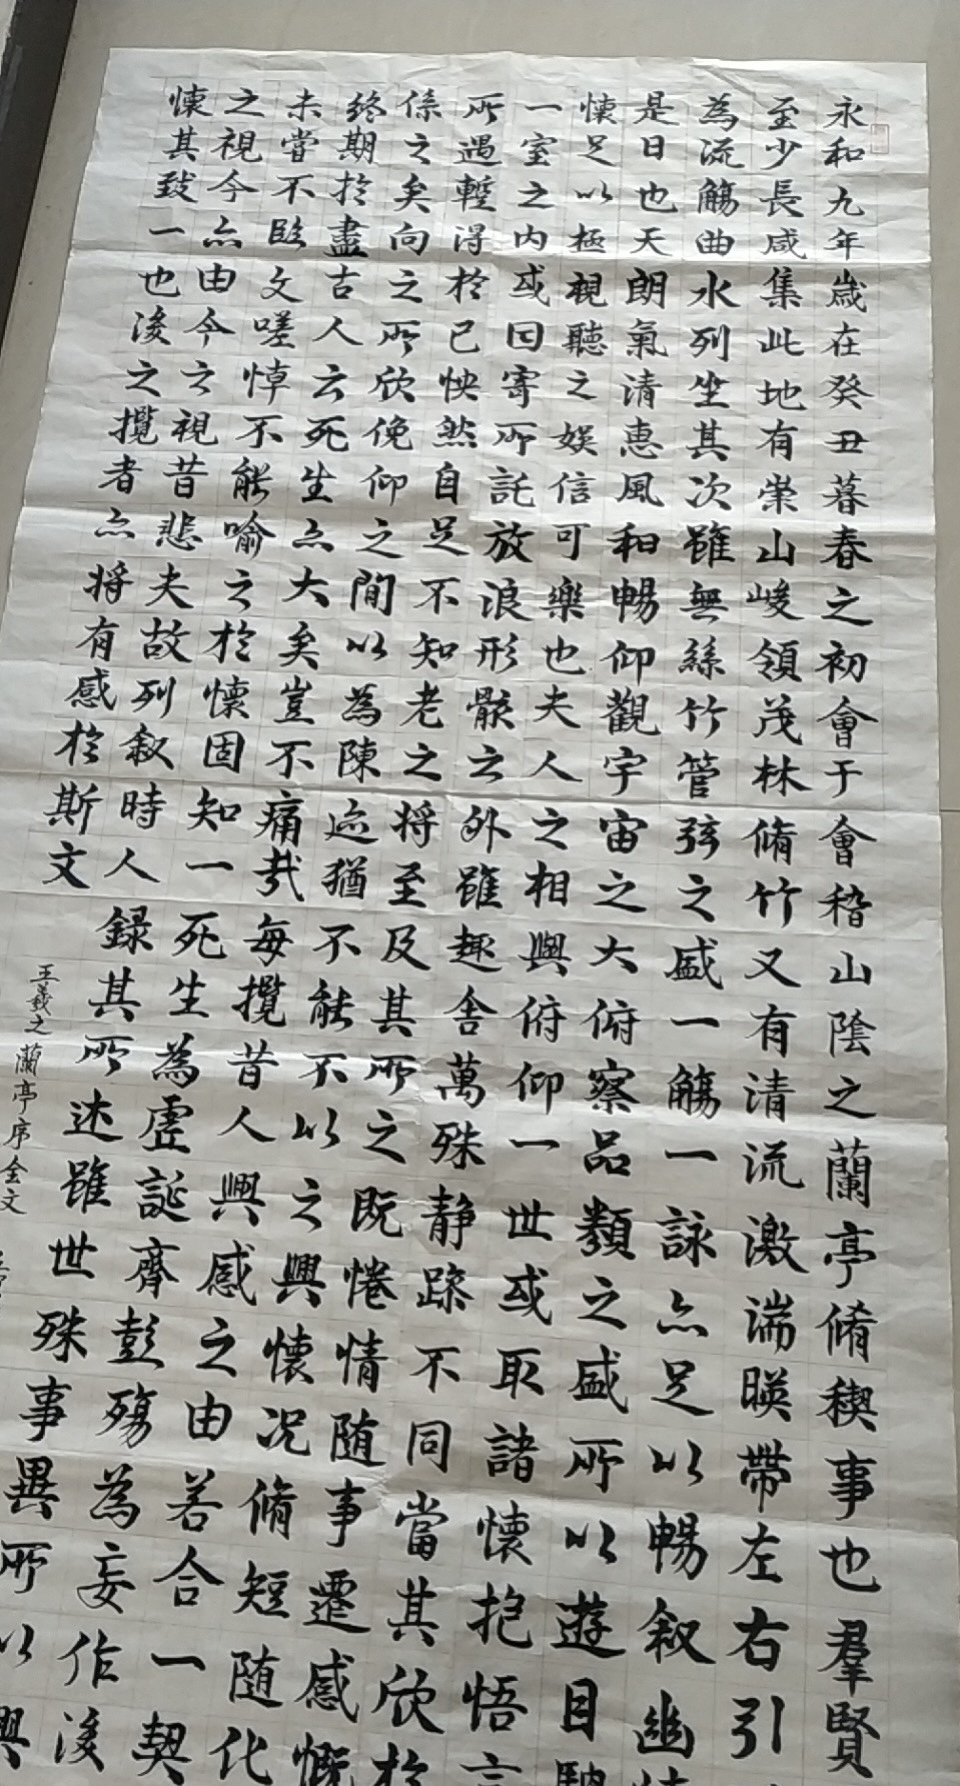 永和九年歲在癸丑暮春之初會于會稽山陰之蘭亭脩稧事也羣賢
至少長咸集此地有崇山峻領茂林脩竹又有清流激湍暎帶左右引
為流觴曲水列坐其次雖無絲竹管弦之盛一觴一詠亦足以暢叙幽情
是日也天朗氣清惠風和暢仰觀宇宙之大俯察品類之盛所以遊目騁
懷足以極視聽之娛信可樂也夫人之相與俯仰一世或取諸懷抱悟言
一室之内或因寄所託放浪形骸之外雖趣舍萬殊静躁不同當其欣於
所遇蹔得於己怏然自足不知老之将至及其所之既惓情随事遷感慨
係之矣向之所欣俛仰之閒以為陳迹猶不能不以之興懷况脩短随化
終期於盡古人云死生亦大矣豈不痛哉每攬昔人興感之由若合一契
未嘗不臨文嗟悼不能喻之於懷固知一死生為虛誕齊彭殤為妄作後
之視今亦由今之視昔悲夫故列叙時人録其所述雖世殊事異所以興
懷其致一也後之攬者亦将有感於斯文
王羲之蘭亭序全文